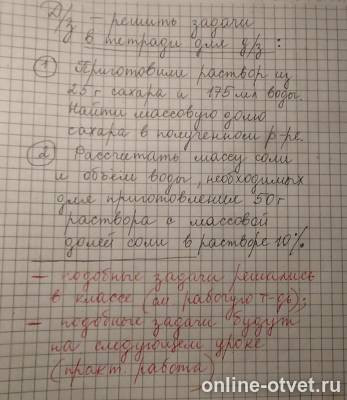 Д/з – решить задачи
в тетради для д/з :
① Приготовили раствор из
25 г сахара и 175 мл воды.
Найти массовую долю
сахара в полученном р-ре.
② Рассчитать массу соли
и объём воды, необходимых
для приготовления 50 г
раствора с массовой
долей соли в растворе 10%
– подобные задачи решились
в классе (см рабочую т-дь);
– подобные задачи будут
на следующем уроке
(практ. работа)
online-otvet.ru